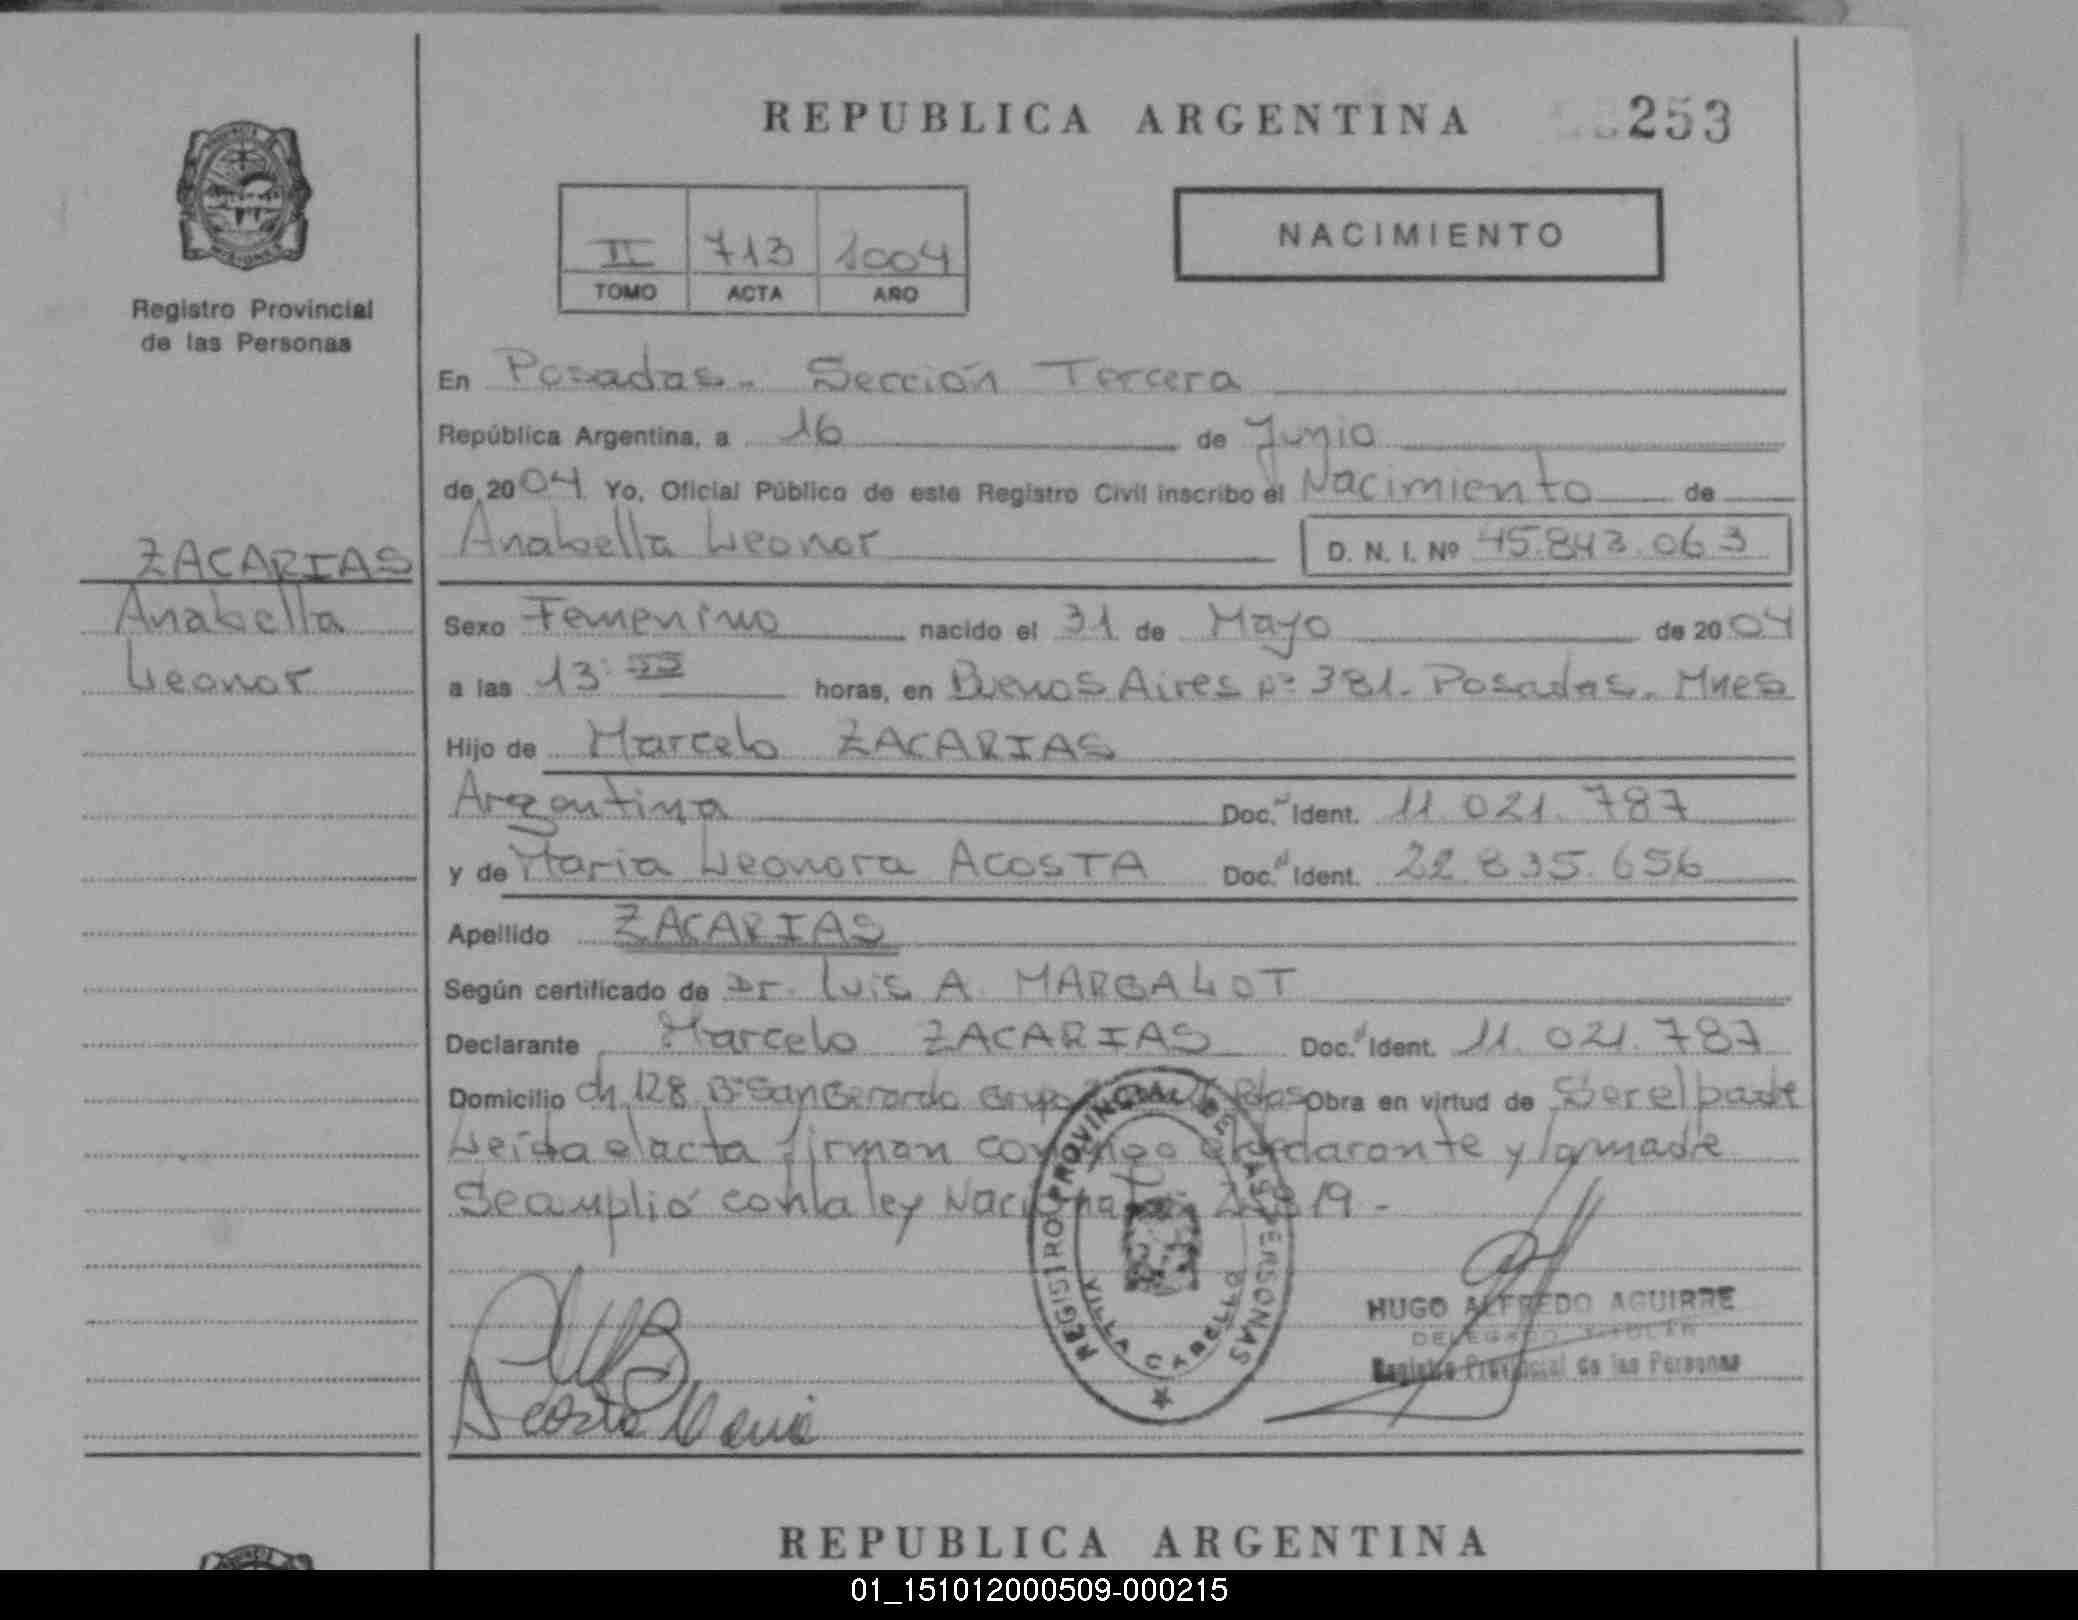 REPUBLICA ARGENTINA 253
II 713 1004
TOMO ACTA AÑO
NACIMIENTO
Registro Provincial
de las Personas
En Posadas. Sección Tercera
República Argentina, a 16 de Junio
de 2004 Yo, Oficial Público de este Registro Civil inscribo el Nacimiento de
Anabella Leonor D. N. I. Nº 45.843.063
ZACARIAS
Anabella
Leonor
Sexo Femenino nacido el 31 de Mayo de 2004
a las 13: horas, en Buenos Aires nº 381. Posadas. Mnes
Hijo de Marcelo ZACARIAS
Argentina Doc. Ident. 11.021.787
y de Maria Leonora ACOSTA Doc. Ident. 22.835.656
Apellido ZACARIAS
Según certificado de Dr. Luis A. MARGALOT
Declarante Marcelo ZACARIAS Doc. Ident. 11.021.787
Domicilio ch 128 Bº San Gerardo Grupo Obra en virtud de Ser el padre
Leída el acta firman conmigo el declarante y la madre
Se amplió con la ley Nacional
REGISTRO PROVINCIAL DE LAS PERSONAS
VILLA CABELLO
HUGO ALFREDO AGUIRRE
DELEGADO TITULAR
Registro Provincial de las Personas
Acosta Maria
REPUBLICA ARGENTINA
01_151012000509-000215